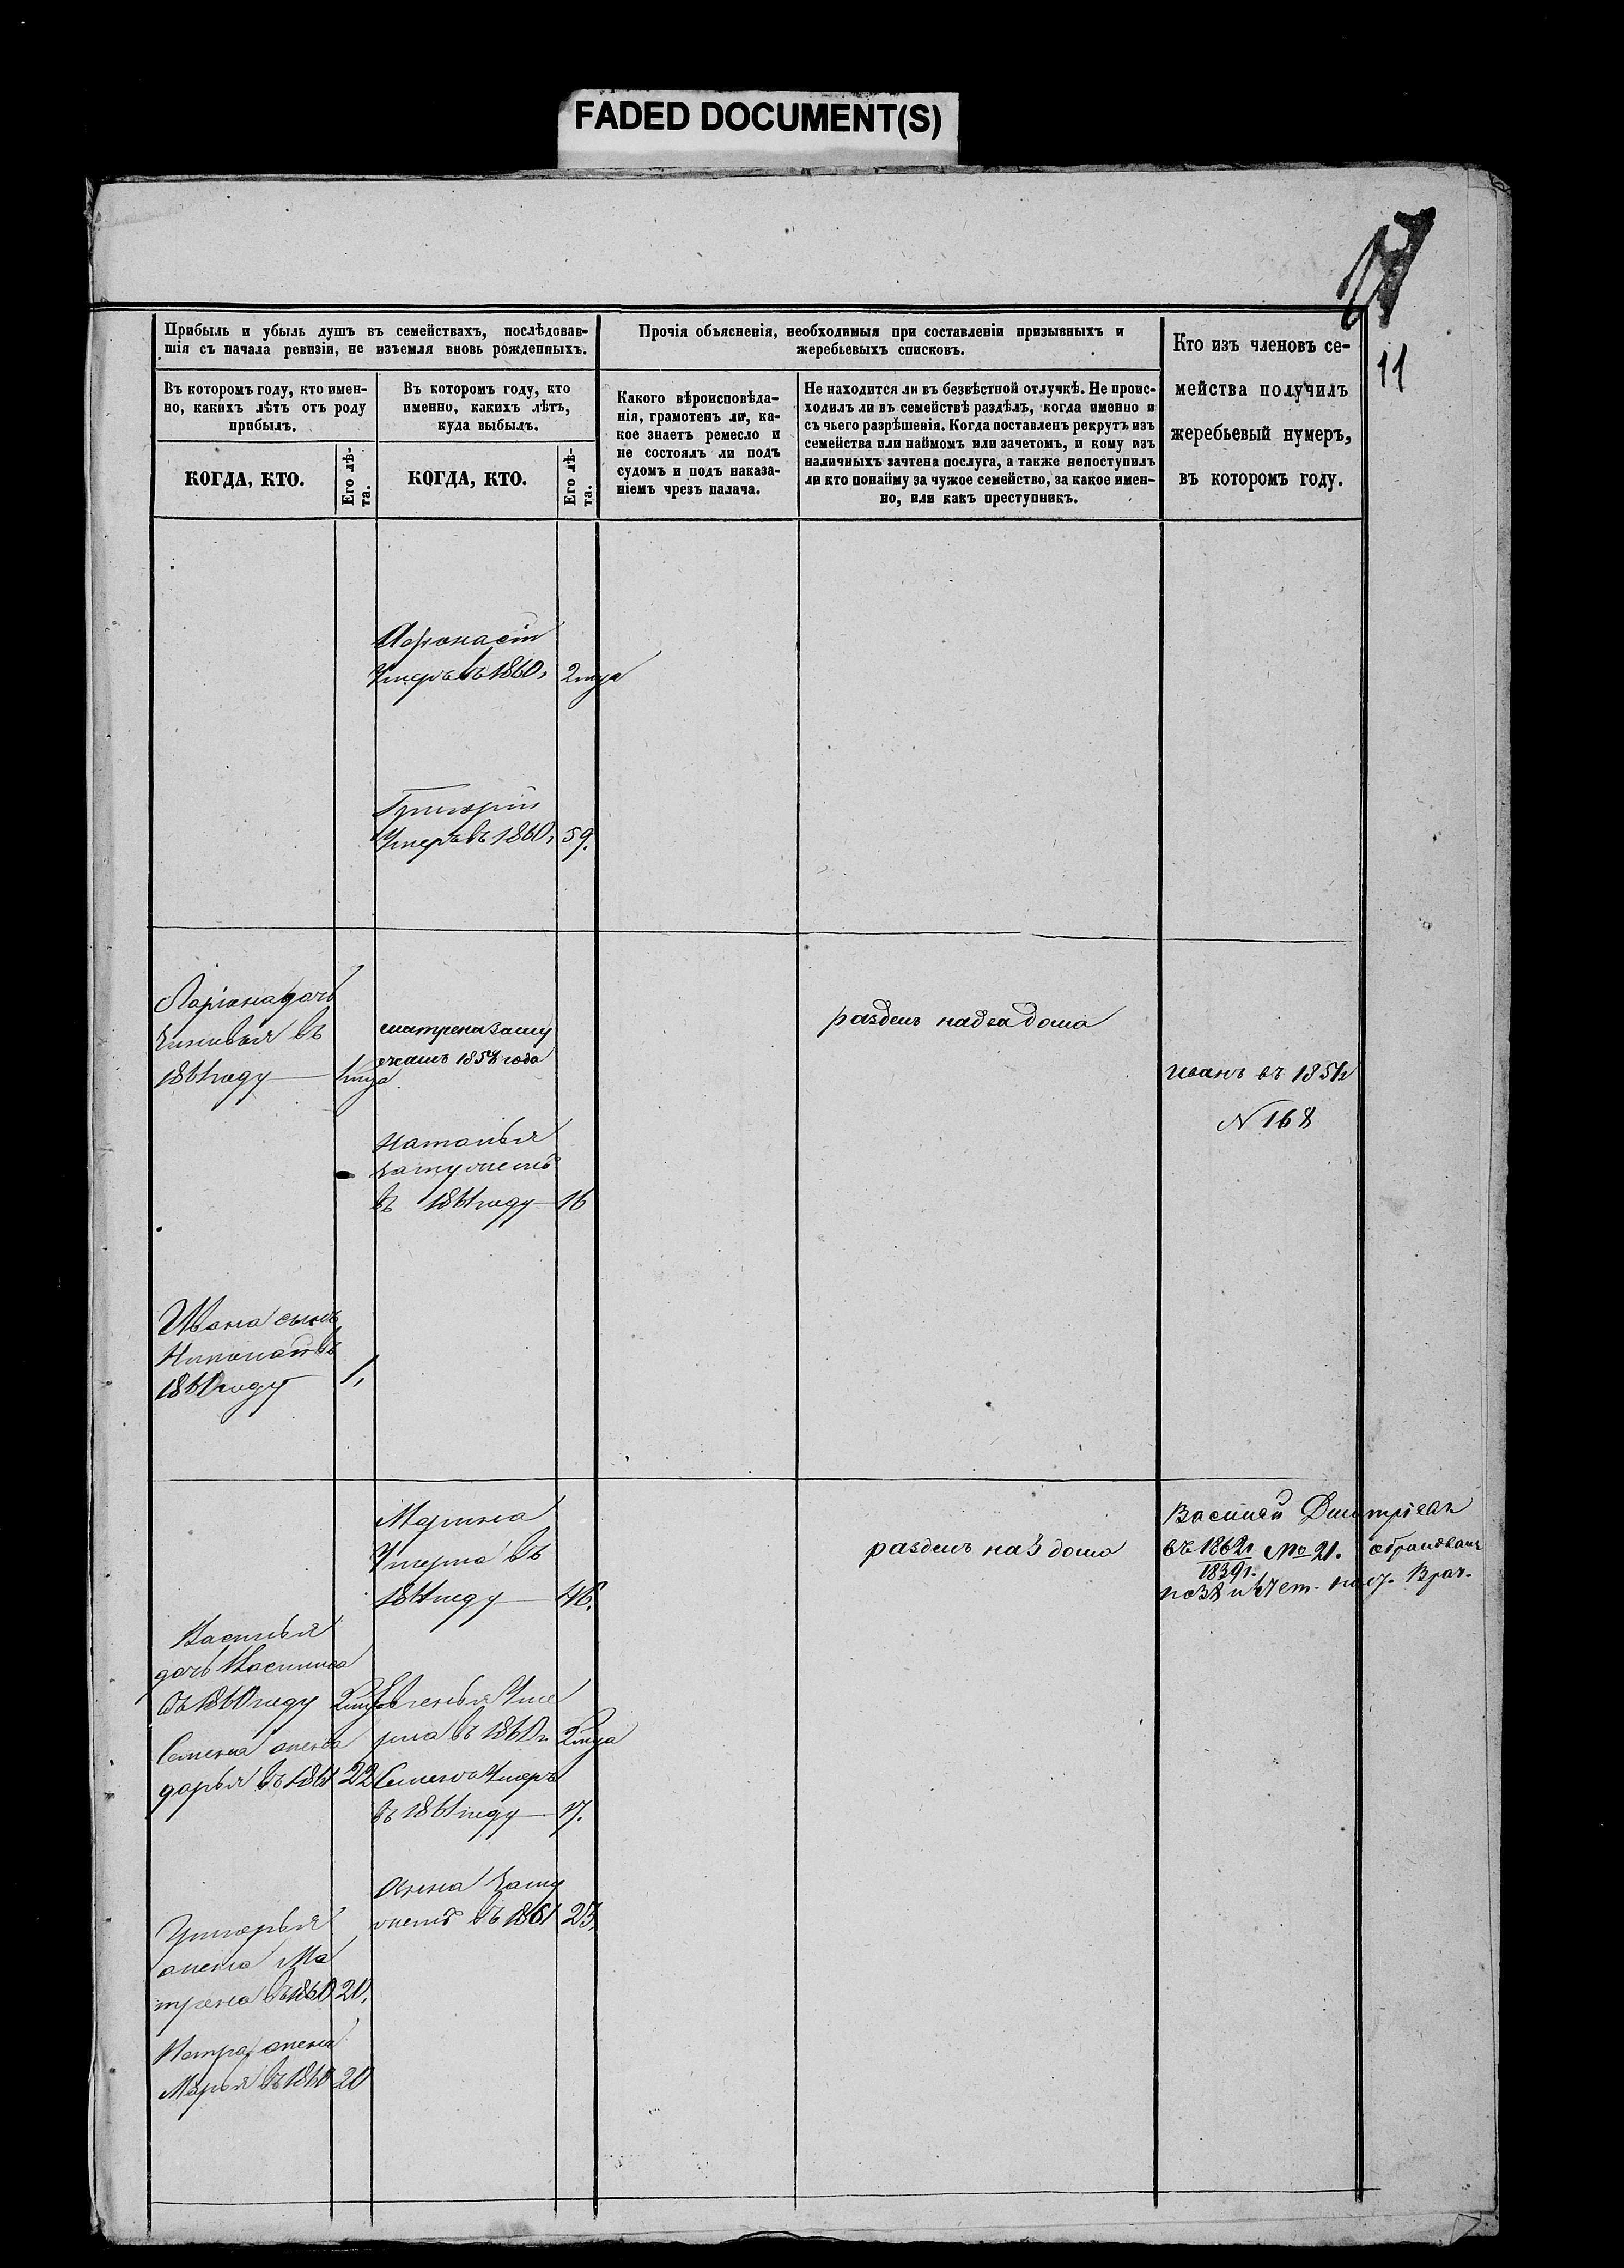 FADED DOCUMENT(S)
11
Прибыль и убыль душъ въ семействахъ, послѣдовав-
шія съ начала ревизіи, не изъемля вновь рожденныхъ.
Прочія объясненія, необходимыя при составленіи призывныхъ и
жеребьевыхъ списковъ.
Кто изъ членовъ се-
мейства получилъ
жеребьевый нумеръ,
въ которомъ году.
Въ которомъ году, кто имен-
но, какихъ лѣтъ отъ роду
прибылъ.
Въ которомъ году, кто
именно, какихъ лѣтъ,
куда выбылъ.
Какого вѣроисповѣда-
нія, грамотенъ ли, ка-
кое знаетъ ремесло и
не состоялъ ли подъ
судомъ и подъ наказа-
ніемъ чрезъ палача.
Не находится ли въ безвѣстной отлучкѣ. Не проис-
ходилъ ли въ семействѣ раздѣлъ, когда именно и
съ чьего разрѣшенія. Когда поставленъ рекрутъ изъ
семейства или наймомъ или зачетомъ, и кому изъ
наличныхъ зачтена послуга, а также непоступилъ
ли кто понайму за чужое семейство, за какое имен-
но, или какъ преступникъ.
КОГДА, КТО.
Его лѣ-
та.
КОГДА, КТО.
Его лѣ-
та.
Афонасій
Умеръ въ 1860, 2 мца
Григорій
Умеръ въ 1860, 59.
Ларіона дочь
въ
1861 году
матрена заму
жемъ 1858 года
разделъ на два дома
Иванъ въ 1854
N 168
Наталья
замужемъ
въ 1861 году 16
Ивана сынъ
Николай въ
1860 году 1,
Марина
Умерла въ
1861 году 46.
разделъ на 3 дома
Василей Дмитріевъ
въ 1862г № 21. обракованъ
1839г.
Василья
дочь
въ 1860 году 2 мца
Евгенья Уме
рла въ 1860г 2 мца
Семена жена
дарья въ 1861 22
Семенъ Умеръ
въ 1861 году 17.
Анна заму
жемъ въ 1861 23,
Григорья
жена Ма
трена въ 1860 20,
Петра жена
Марья въ 1860 20